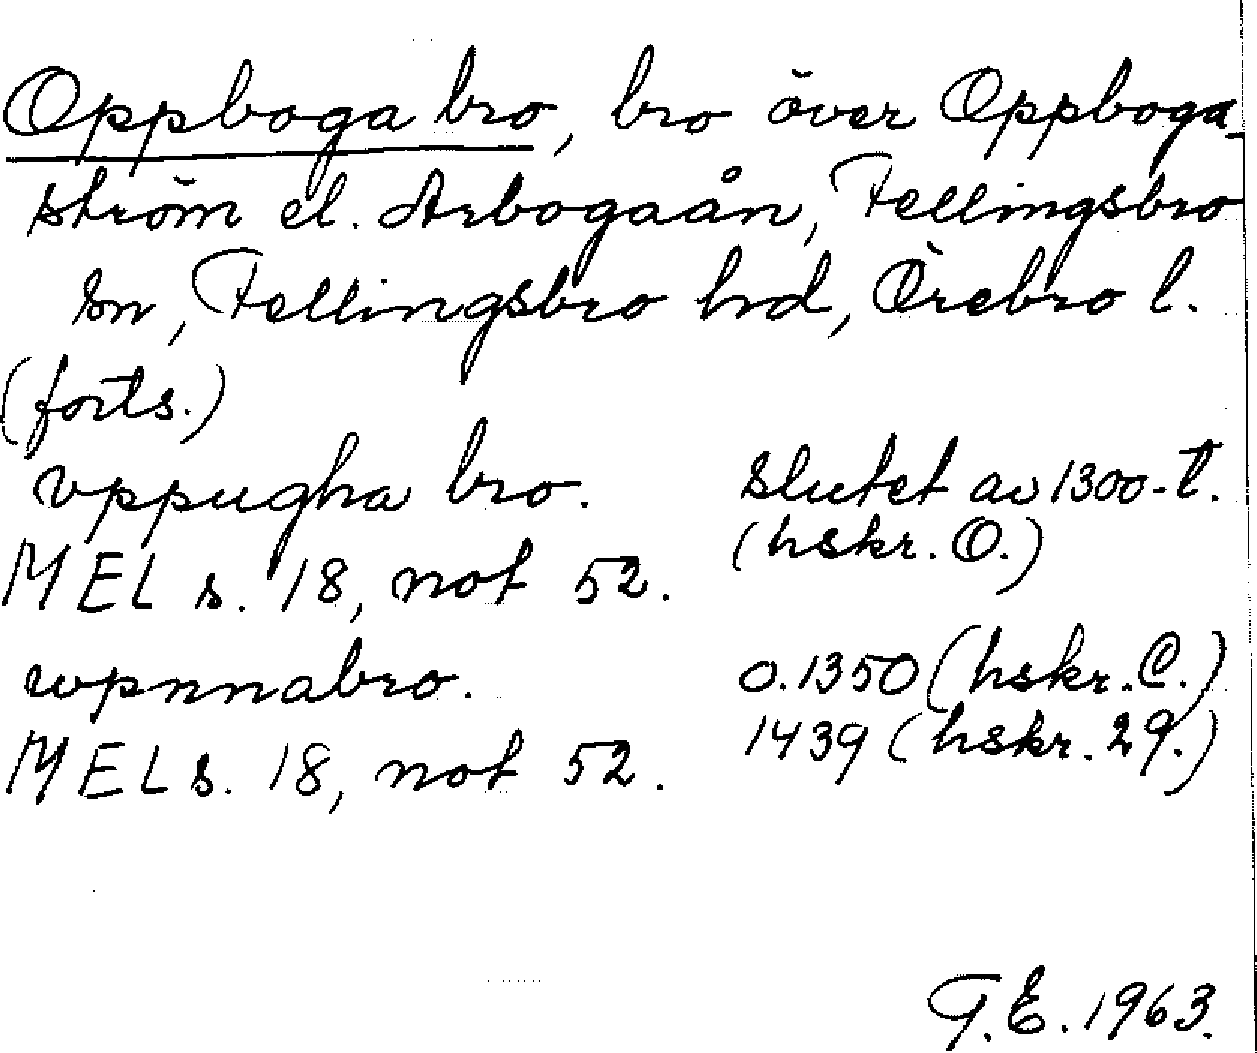 Oppboga bro, bro över Oppboga-
ström el. Arbogaån, Fellingsbro
sn, Fellingsbro hd, Örebro l.
(forts.)
vppugha bro. Slutet av 1300-t.
(hskr. O.)
MEL s. 18, not 52.
wpnnabro. o. 1350 (hskr. C.)
1439 (hskr. 29.)
MEL s. 18, not 52.
G.E. 1963.